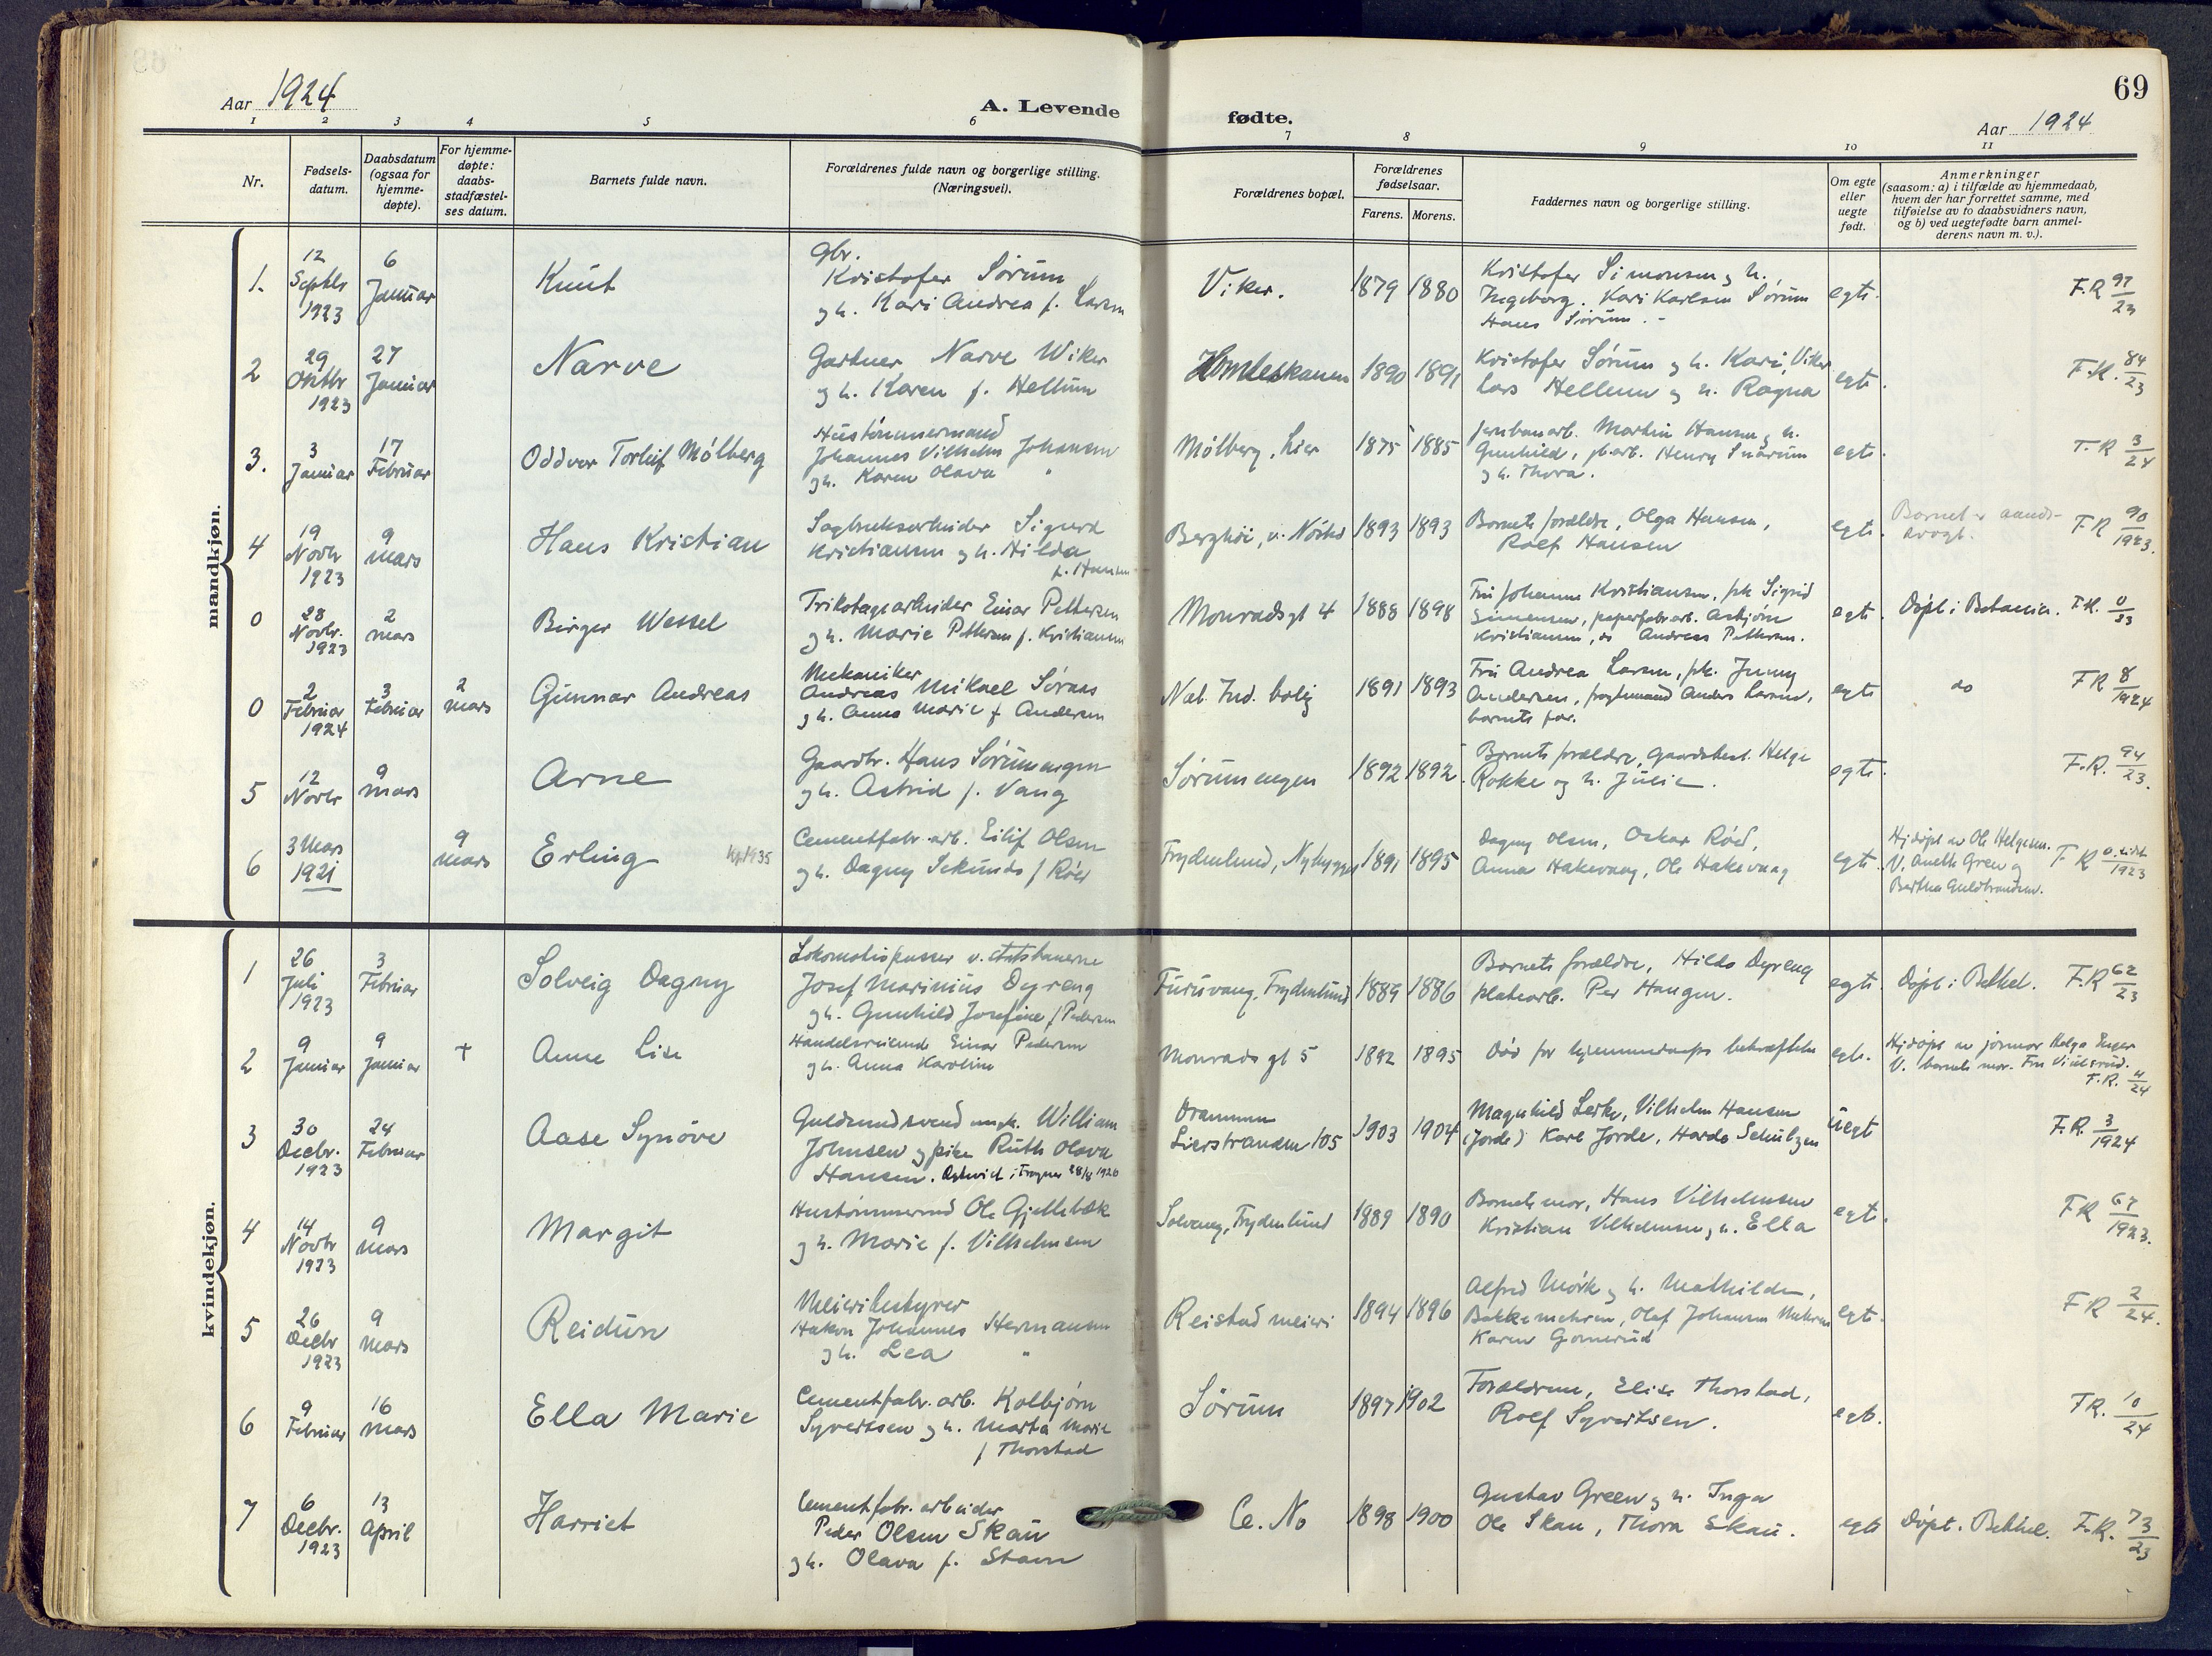 69
Aar 1924
A. Levende
fødte.
Aar 1924
1 2 3 4 5 6 7 8 9 10 11
Nr.
Fødsels-
datum.
Daabsdatum
(ogsaa for
hjemme-
døpte).
For hjemme-
døpte:
daabs-
stadfæstel-
ses datum.
Barnets fulde navn.
Forældrenes fulde navn og borgerlige stilling.
(Næringsvei).
Forældrenes bopæl.
Forældrenes
fødselsaar.
Farens. Morens.
Faddernes navn og borgerlige stilling.
Om egte
eller
uegte
født.
Anmerkninger
(saasom: a) i tilfælde av hjemmedaab,
hvem der har forrettet samme, med
tilføielse av to daabsvidners navn,
og b) ved uegtefødte barn anmel-
derens navn m. v.).
mandkjøn.
1.
12
Septbr
1923
6
Januar
Knut
Gbr.
Kristofer Sørum
og h. Kari Andrea f. Larsen
Viker.
1879 1880
Kristofer Simonsen og h.
Ingeborg. Kari Karlsen Sørum
Hans Sørum.
egte.
F.R 97/23
2
29
Oktbr
1923
27
Januar
Narve
Gartner Narve Wiker
og h. Karen f. Hellum
1890 1891
Kristofer Sørum og h. Kari, Viker
Lars Hellum og h. Ragna
egte.
F.R. 84/23
3.
3
Januar
17
Februar
Oddvar Torleif Mølberg
Hustømmermand
Johannes Vilhelm Johansen
og h. Karen Olava "
Mølberg, Lier
1875 1885
jernbanarb. Martin Hansen og h.
Gunhild, jb.arb. Henry Snarum
og h. Thora.
egte.
F.R 3/24
4
19
Novbr
1923
9
mars
Hans Kristian
Sagbruksarbeider Sigurd
Kristiansen og h. Hilda
f. Hansen
Berghøi, v. Nøsted
1893 1893
Barnets forældre, Olga Hansen,
Rolf Hansen
egte.
Barnet er aands-
svagt.
F.R 90/1923.
0
28
Novbr.
1923
2
mars
Birger Wessel
Trikotagearbeider Einar Pettersen
og h. Marie Pettersen f. Kristiansen
Monradsgt 4
1888 1898
Fru Johanne Kristiansen, frk Sigrid
Simensen, papirfabr.arb. Asbjørn
Kristiansen, do Andreas Pettersen.
egte
Døpt i Betania.
F.R. 0/23
0
2
Februar
1924
3
Februar
2
mars
Gunnar Andreas
Mekaniker
Andreas Mikael Søraas
og h. Anna Marie f Andersen
Næt. Ind. bolig
1891 1893
Fru Andrea Larsen, frk. Jenny
Andersen, Anders Larsen,
barnets far.
egte
do
F R 8/1924
5
12
Novbr
9
mars
Arne
Gaardbr. Hans Sørumengen
og h. Astrid f. Vang
Sørumengen
1892 1892.
Barnets forældre, gaardsbest. Helge
Rokke og h. Julie.
egte.
F.R. 94/23.
6
3 Mars
1921
9
mars
Erling
Kp 1935
Cementfabr. arb. Eilif Olsen
og h. Dagny Sekunda f Röed
Frydenlund, Nybygget
1891 1895
Dagny Olsen, Oskar Röed,
Anna Hakevaag, Ole Hakevaag
egte.
Hjdøpt av Ole Helgesen.
V. Anette Green og
Bertha Guldbrandsen.
F R 1923
kvindekjøn.
1
26
Juli
1923
3
Februar
Solveig Dagny
Lokomotivpusser v. statsbanerne
Josef Marinius Dyreng
og h. Gunhild Josefine f Pedersen
Furuvang, Frydenlund
1889 1886
Barnets forældre, Hilda Dyreng
platearb. Per Haugen.
egte.
Døpt i Bethel.
F.R 62/23
2
9
Januar
9
Januar
+
Anne Lise
Handelsreisende Einar Pedersen
og h. Anna Karoline
Monrads gt 5
1892 1895
Död før hjemmedaaps bekræftelse
egte.
Hjdøpt av jormor Helga Unger
V. barnets mor. Fru
F.R. 4/24
3
30
Decbr.
1923
24
Februar
Aase Synöve
Guldsmedsvend ungk. William
Johnsen og pike Ruth Olava
Hansen. Egteviet i Frogner 28/8 1926
Drammen
Lierstranden 105
1903 1904
Magnhild Lerke, Vilhelm Hansen
(Jorde) Karl Jorde, Harda Schultzen
uegt
F.R. 3/1924
4
14
Novbr
1923
9
mars
Margit
Hustømmermd Ole Gjellebæk
og h. Marie f. Vilhelmsen
Solvang, Frydenlund
1889 1890
Barnets mor, Hans Vilhelmsen
Kristian Vilhelmsen og h. Ella
egte.
F R 67/1923.
5
26
Decbr
1923
9
mars
Reidun
Meieribestyrer
Hakon Johannes Hermansen
og h. Lea "
Reistad meieri
1894 1896
Alfred Mørk og h. Mathilde,
Bakkemehren, Olaf Johansen Mehren
Karen Gomerud
egte.
F R 2/24.
6
9
Februar
16
mars
Ella Marie
Cementfabr. arb. Kolbjørn
Syvertsen og h. Marta Marie
f Thorstad
Sørum
1897 1902
Forældrene, Elise Thorstad,
Rolf Syvertsen.
egt.
F.R. 10/24
7
6
Decbr.
1923
13
April
Harriet
Cementfabr. arbeider
Peder Olsen Skau
og h. Olava f. Stavn
Ce. No
1898 1900
Gustav Green og h. Inga
Ole Skau, Thora Skau.
egte
Døpt. Bethel.
F.R. 73/23